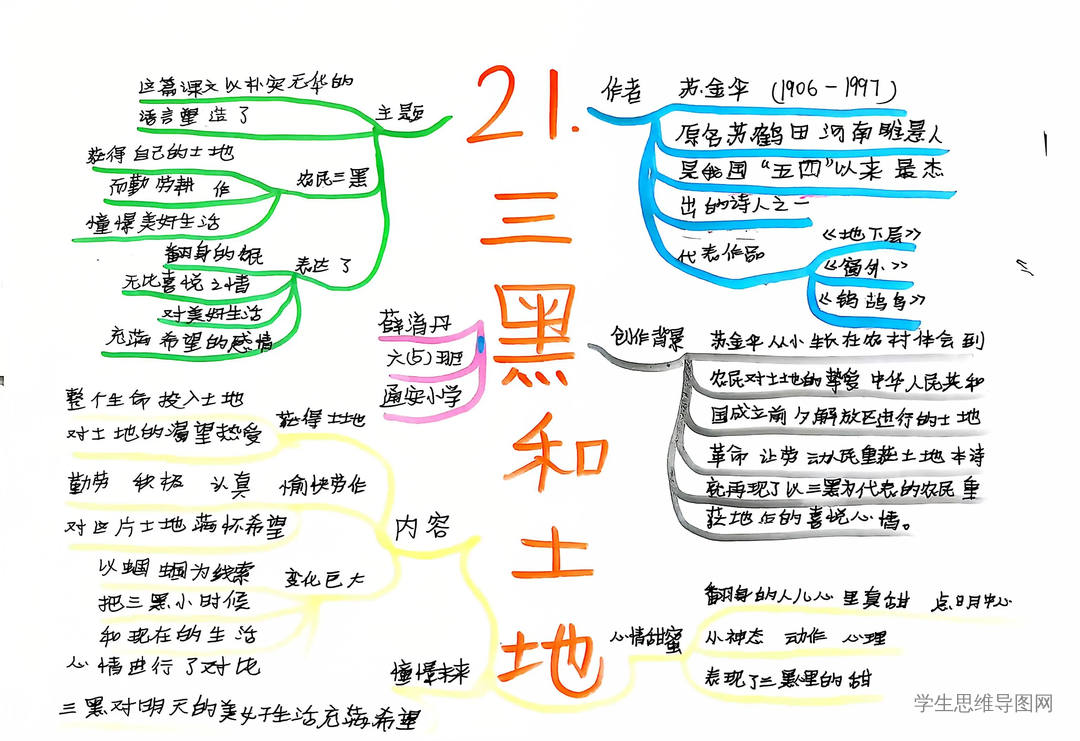 21.
三黑和土地
主题
这篇课文以朴实无华的
语言塑造了
农民三黑
获得自己的土地
而勤劳耕作
憧憬美好生活
表达了
翻身的农民
无比喜悦之情
对美好生活
充满希望的感情
作者
苏金伞(1906-1997)
原名苏鹤田河南睢县人
是我国“五四”以来最杰
出的诗人之一
代表作品
《地下层》
《窗外》
《鹁鸪鸟》
创作背景
苏金伞从小生长在农村体会到
农民对土地的挚爱中华人民共和
国成立前夕解放区进行的土地
革命让劳动人民重获土地本诗
就再现了以三黑为代表的农民重
获地后的喜悦心情。
六(5)班
通安小学
内容
获得土地
整个生命投入土地
对土地的渴望热爱
愉快劳作
勤劳积极认真
对这片土地满怀希望
变化巨大
以蝈蝈为线索
把三黑小时候
和现在的生活
心情进行了对比
憧憬未来
三黑对明天的美好生活充满希望
心情甜蜜
翻身的人儿心里真甜 点明中心
从神态 动作 心理
表现了三黑里的甜
学生思维导图网